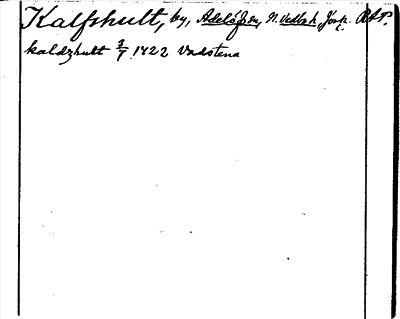 Kalfshult, by, Adelöfsn, N. Vedbok, Jönk. RAP.
kaldzhult 2/7 1422 Vadstena